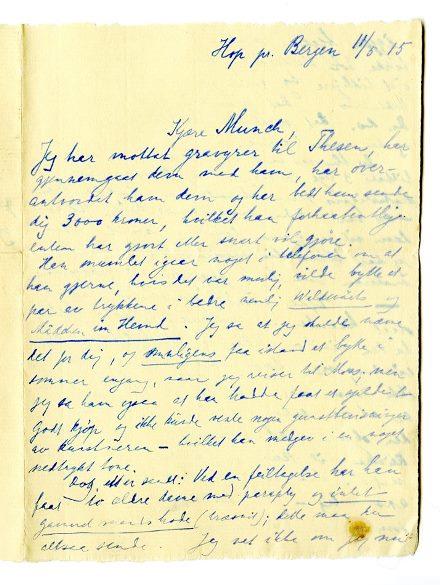 Hop pr. Bergen 11/5 15
Kjære Munch,
Jeg har mottat gravyrer til Thesen, har
gjennemgaat dem med ham, har over-
antvordet ham dem og har bedt ham sende
dig 3000 kroner, hvilket han forhaabentligen
enten har gjort eller snart vil gjøre.
Han mumlet igaar noget i telefonen om at
han gjerne, hvis det var mulig, vilde bytte et
par av trykkene i bedre nemlig
Mädchen im Hemd. Jeg sa at jeg skulde nævne
det for dig, og muligens faa istand et bytte i
sommer engang, naar jeg reiser til Moss, men
jeg sa ham ogsaa at han hadde faaet et
godt kjøp og ikke kunde vente nogen gunstbevisninger
av kunstneren – hvilket han medgav i en noget
nedtrykt tone.
Ved en feiltagelse har han
faat to ældre damer med paraply og intet
gammel mands hode (træsnit); dette maa du
altsaa sende. Jeg vet ikke om jeg